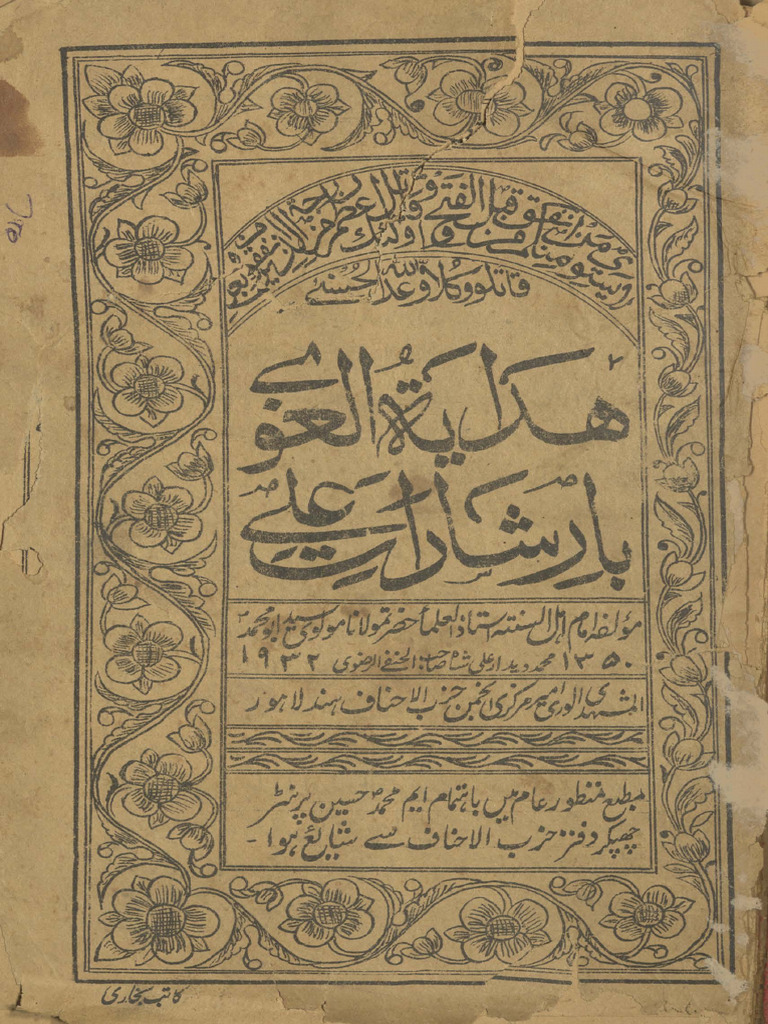 لا يستوي منكم من انفق من قبل الفتح وقاتل اولئك اعظم درجة من الذين انفقوا من بعد
وقاتلوا وكلا وعد الله الحسنى
هدایة الغوی
بارشادات علی
مؤلفہ امام اہل السنتہ استاذ العلماء حضرتمولانا مولوی سید ابو محمد
۱۳۵۰ محمد دیدار علی شاہ صاحب الحنفی الرضوی ۱۹۳۲
المشہدی الوری امیر مرکزی انجمن حزب الاحناف ہند لاہور
مطبع منظور عام میں باہتمام ایم محمد حسین پرنٹر
چھپکر دفتر حزب الاحناف سے شایع ہوا۔
کاتب بخاری